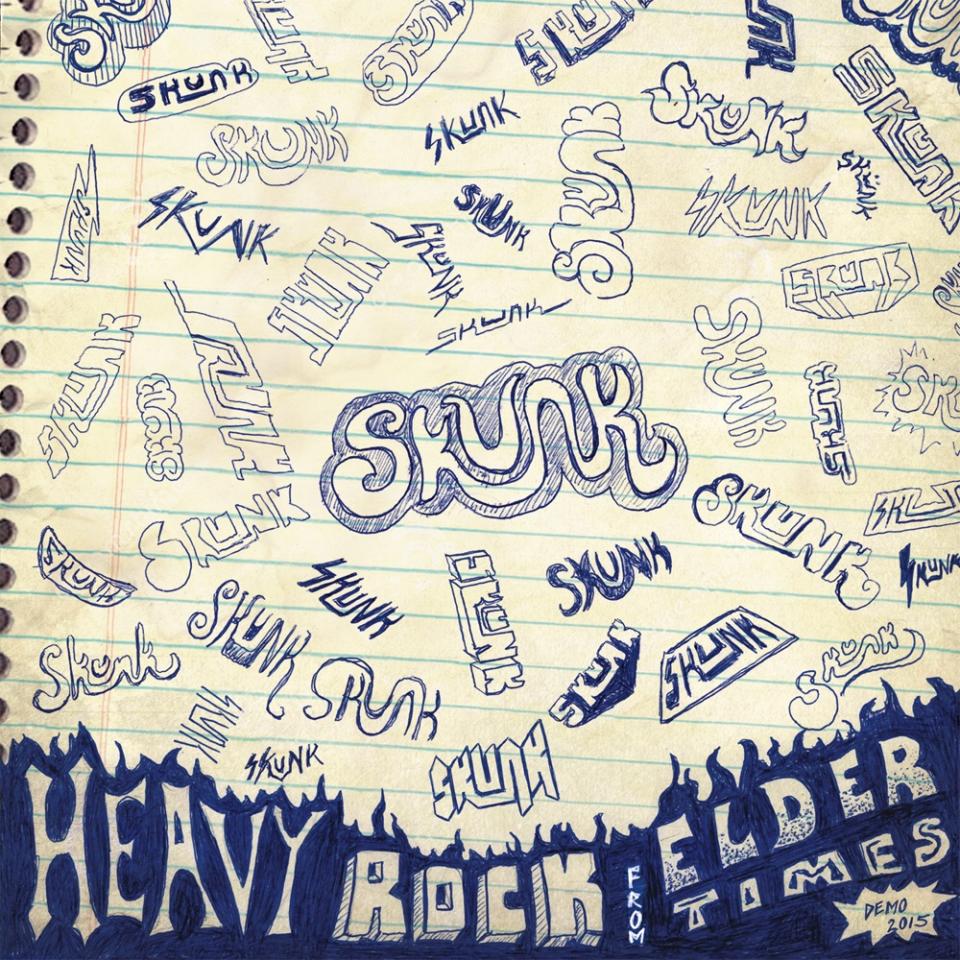 SKUNK
SKUNK
SKUNK
SKUNK
SKUNK
SKUNK
SKUNK
SKUNK
SKUNK
SKÜNK
SKUNK
SKUNK
SKUNK
SKUNK
SKUNK
SKUNK
SKUNK
SKUNK
SKUNK
SKUNK
SKUNK
SKUNK
SKUNK
SKUNK
SK
SKUNK
SKUNK
SKU
SKUNK
SKUNK
SKUNK
SKUNK
SKUNK
SKUNK
SKUNK
Skunk
SKUNK
SKUNK
SKUNK
SKUNK
SKUNK
SKUNK
SKUNK
HEAVY
ROCK
FROM
ELDER
TIMES
DEMO
2015